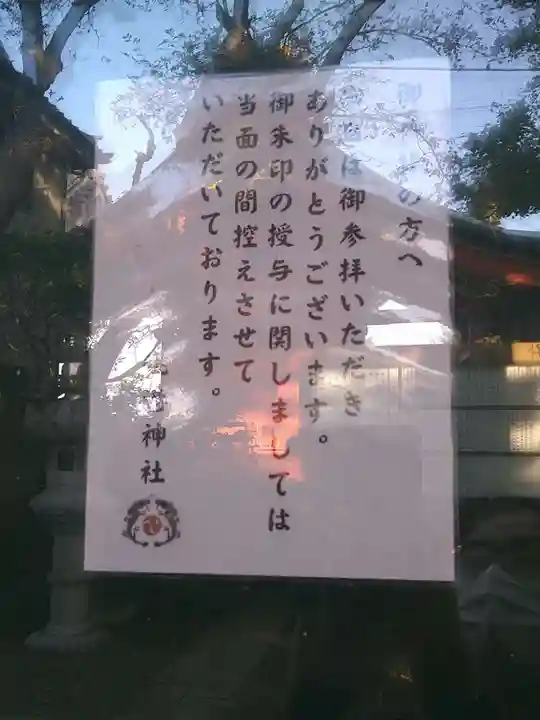 の方へ
は御参拝いただき
ありがとうございます。
御朱印の授与に関しましては
当面の間控えさせて
いただいております。
神社